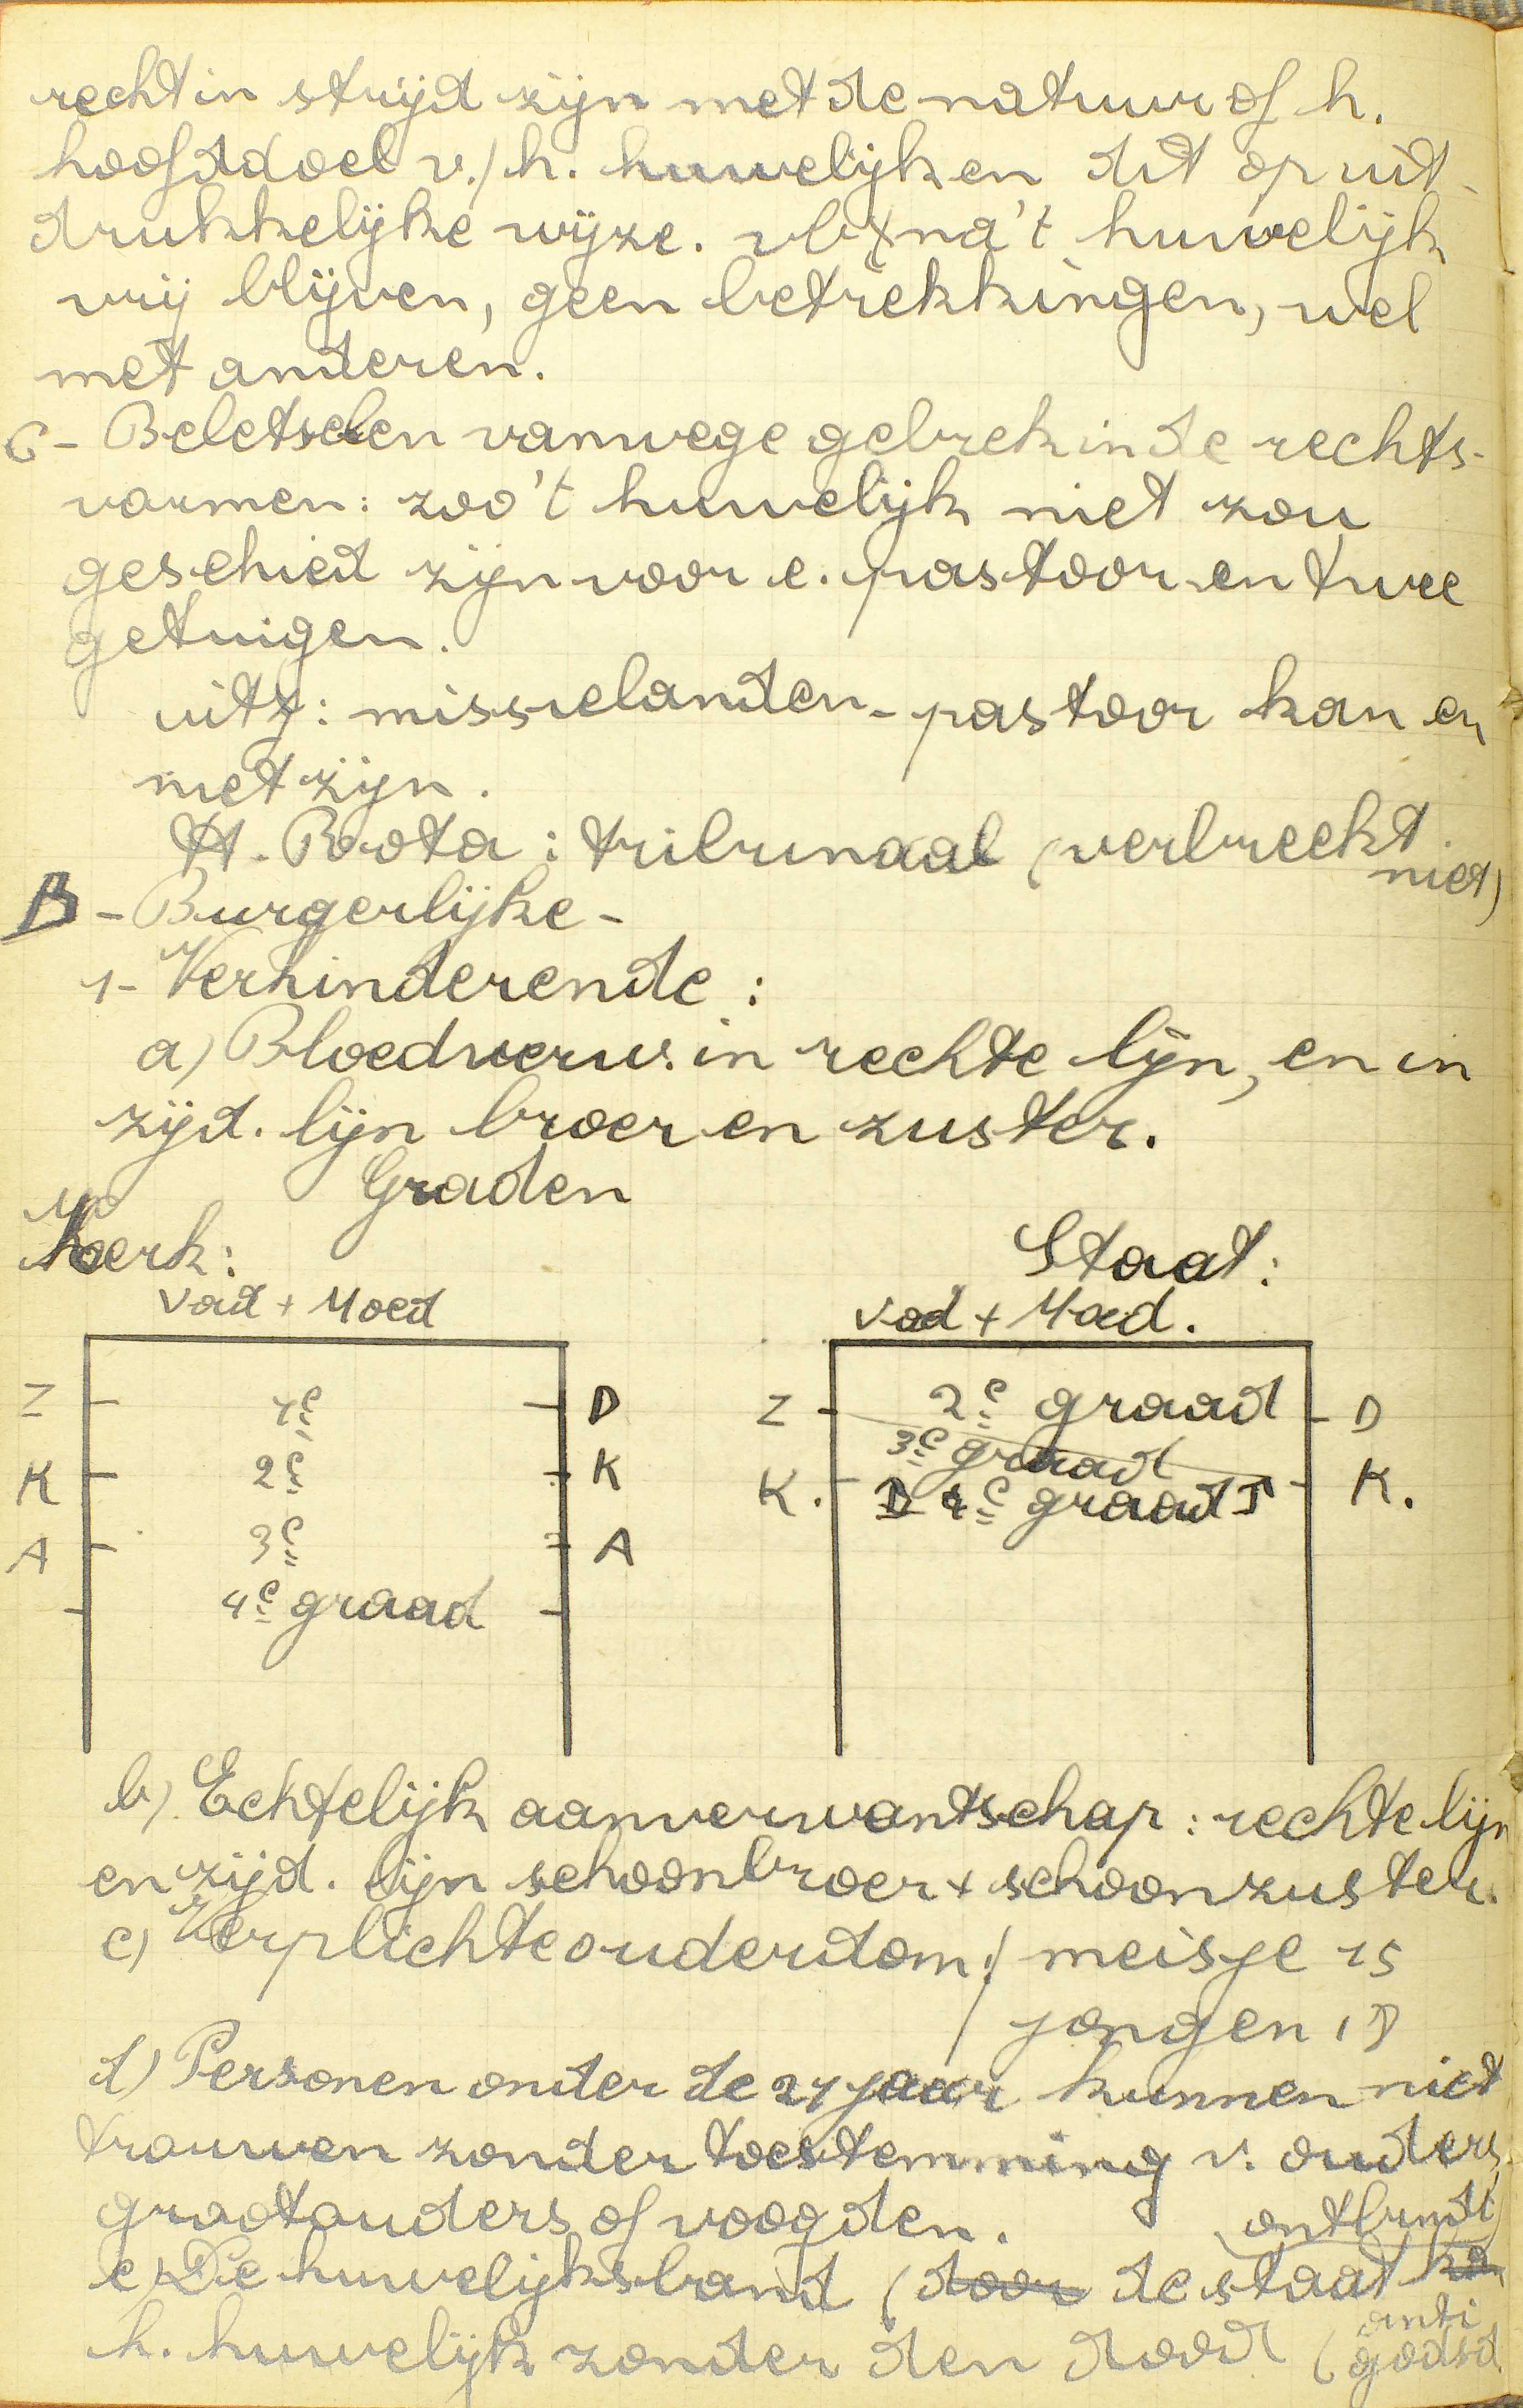 recht in strijd zijn met de natuur of h.
hoofddoel v./h. huwelijk en dit op uit-
drukkelijke wijze. vb. na 't huwelijk
vrij blijven, geen betrekkingen, wel
met anderen.
6- Beletselen vanwege gebrek in de rechts-
vormen: zoo 't huwelijk niet zou
geschied zijn voor e. pastoor en twee
getuigen.
uitz: missielanden - pastoor kan er
niet zijn.
H. Rota: tribunaal (verbreekt
niet)
B - Burgerlijke -
1- Verhinderende:
a) Bloedverw. in rechte lijn, en in
zijd. lijn broer en zuster.
Graden
Kerk:
Staat:
Vad + Moed
Vad + Moed.
Z 1e D
Z 2e graad D
3e graad
K 2e K
K. 4e graad K.
A 3e A
4e graad
b) Echtelijk aanverwantschap: rechte lijn
en zijd. lijn schoonbroer + schoonzuster.
c) Verplichte ouderdom: meisje 15
jongen 18
d) Personen onder de 21 jaar kunnen niet
trouwen zonder toestemming v. ouders,
grootouders of voogden.
ontbindt
e) De huwelijksband (door de staat
h. huwelijk zonder den dood (anti
godsd